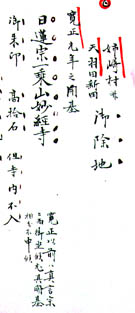 姉崎村
天羽田新田
御除地
寛正元年之開基
日蓮宗一乗山妙経寺
寛正以前ハ真言宗
御朱印 高拾石 但寺内不入